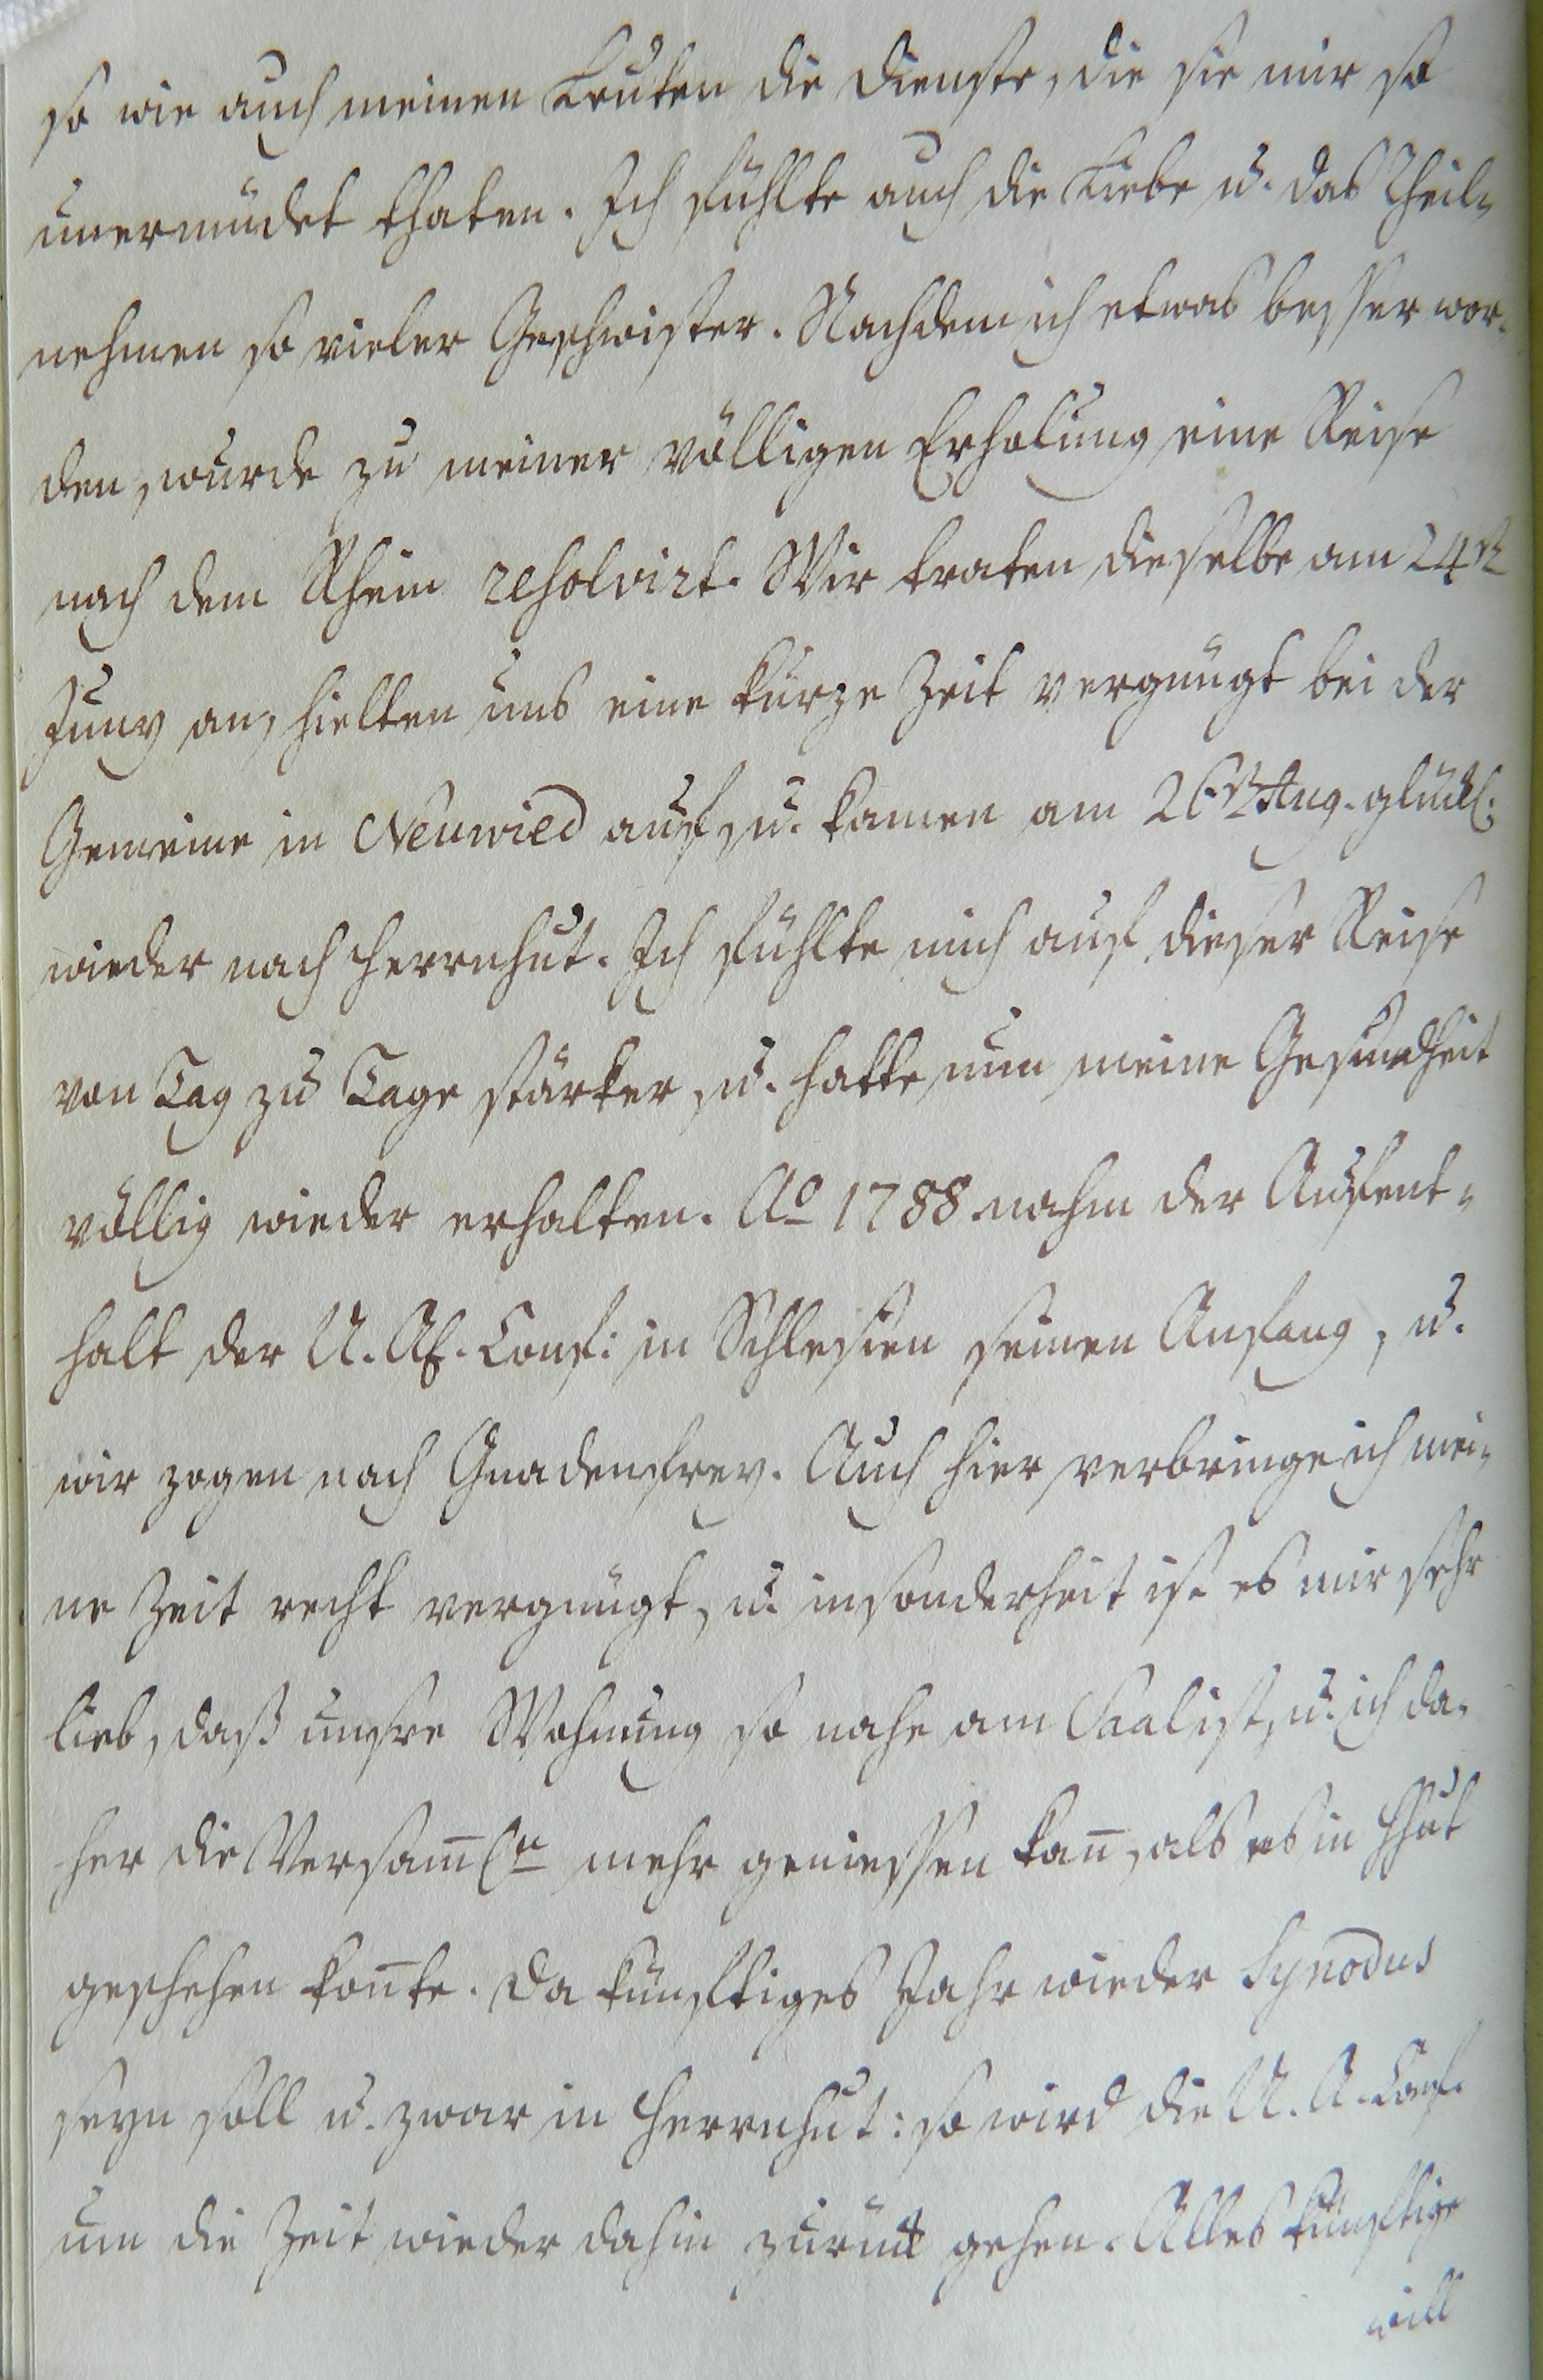 so wie auch meinen Leuten die Dienste, die sie mir so
unermüdet thaten. Ich fühlte auch die Liebe u. das Theil-
nehmen so vieler Geschwister. Nachdem ich etwas besser wor-
den, wurde zu meiner völligen Erholung eine Reise
nach dem Rhein resolvirt. Wir traten dieselbe am 24st
Juny an, hielten uns eine kurze Zeit vergnügt bei der
Gemeine in Neuwied auf, u. kamen am 26st Aug. glückl.
wieder nach Herrnhut. Ich fühlte mich auf dieser Reise
von Tag zu Tage stärker, u. hatte nun meine Gesundheit
völlig wieder erhalten. Ao 1788 nahm der Aufent-
halt der U. Ael. Conf: in Schlesien seinen Anfang, u.
wir zogen nach Gnadenfrey. Auch hier verbringe ich mei-
ne Zeit recht vergnügt, u. insonderheit ist es mir sehr
lieb, daß unsre Wohnung so nahe am Saal ist, u. ich da-
her die Versam̅l.n mehr geniessen kan̅, als es in Hhut
geschehen kon̅te. Da künftiges Jahr wieder Synodus
seyn soll u. zwar in Herrnhut: so wird die U. A. Conf.
um die Zeit wieder dahin zurück gehen. Alles künftige
will